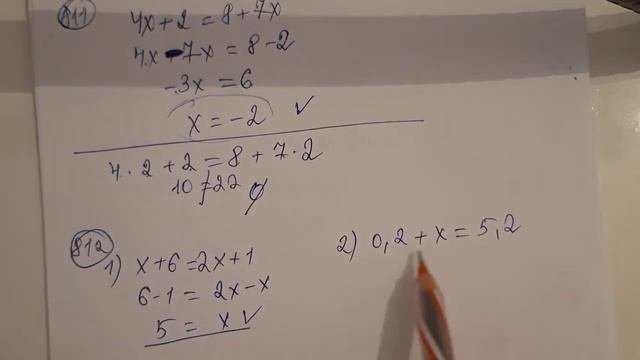 811
4x + 2 = 8 + 7x
4x - 7x = 8 - 2
-3x = 6
x = -2 ✓
4 · 2 + 2 = 8 + 7 · 2
10 ≠ 22 ∅
812
1) x + 6 = 2x + 1
6 - 1 = 2x - x
5 = x ✓
2) 0,2 + x = 5,2